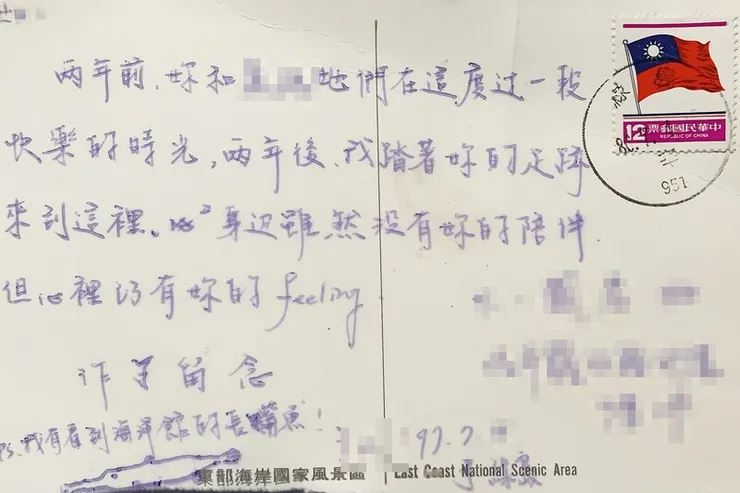 兩年前，妳和 她們在這度过一段
快樂的時光，兩年後，我踏著妳的足跡
來到這裡。心 身边雖然没有妳的陪伴
但心裡仍有妳的feeling
作為留念
PS.我有看到海洋館的長 魚！
97.7.
東部海岸國家風景區 East Coast National Scenic Area
12 中華民國郵票
REPUBLIC OF CHINA
951